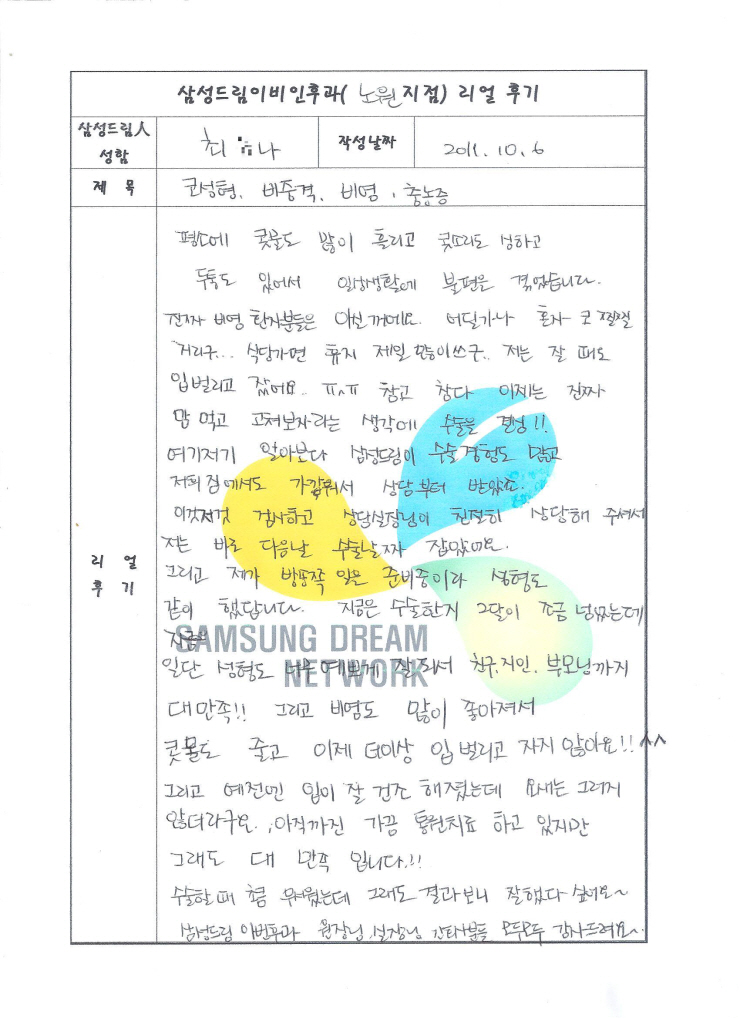 삼성드림이비인후과( 노원지점) 리얼 후기
삼성드림人
성함
최 나
작성날짜
2011. 10. 6
제 목
코성형, 비중격, 비염, 축농증
평소에 콧물도 많이 흘리고 콧소리도 심하고
두통도 있어서 일상생활에 불편을 겪었습니다.
진짜 비염 환자분들은 아실꺼에요. 어딜가나 혼자 코 찔찔
거리구... 식당가면 휴지 제일 많이쓰구.. 저는 잘 때도
입벌리고 잤어요.. ㅠㅅㅠ 참고 참다 이제는 진짜
맘 먹고 고쳐보자라는 생각에 수술을 결심!!
여기저기 알아보다 삼성드림이 수술경험도 많고
저희 집에서도 가까워서 상담부터 받았죠.
이것저것 검사하고 상담실장님이 친절히 상담해 주셔서
저는 바로 다음날 수술날짜 잡았어요.
그리고 제가 방송쪽 일을 준비중이라 성형도
같이 했답니다. 지금은 수술한지 2달이 조금 넘었는데
SAMSUNG DREAM
NETWORK
일단 성형도 너무 예쁘게 잘되서 친구, 지인, 부모님까지
대만족!! 그리고 비염도 많이 좋아져서
콧물도 줄고 이제 더이상 입 벌리고 자지 않아요!! ^^
그리고 예전엔 입이 잘 건조 해졌는데 요새는 그러지
않더라구요. 아직까진 가끔 통원치료 하고 있지만
그래도 대 만족 입니다.!!
수술할 때 좀 무서웠는데 그래도 결과보니 잘했다 싶어요~
삼성드림 이비인후과 원장님, 실장님 간호사분들 모두모두 감사드려요~
리 얼
후 기